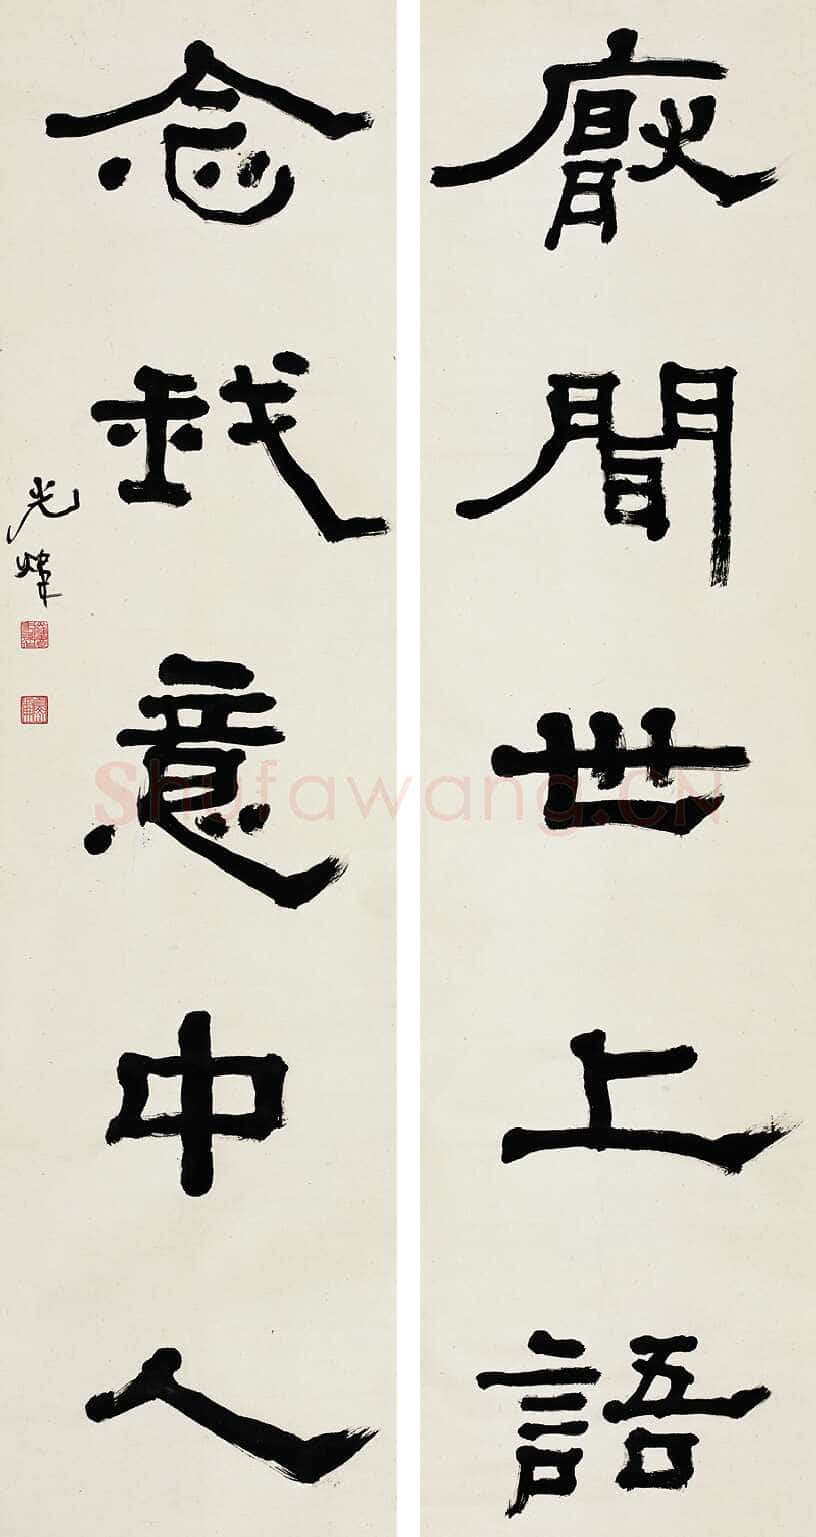 厭聞世上語
念我意中人
光煒
Shufawang.CN